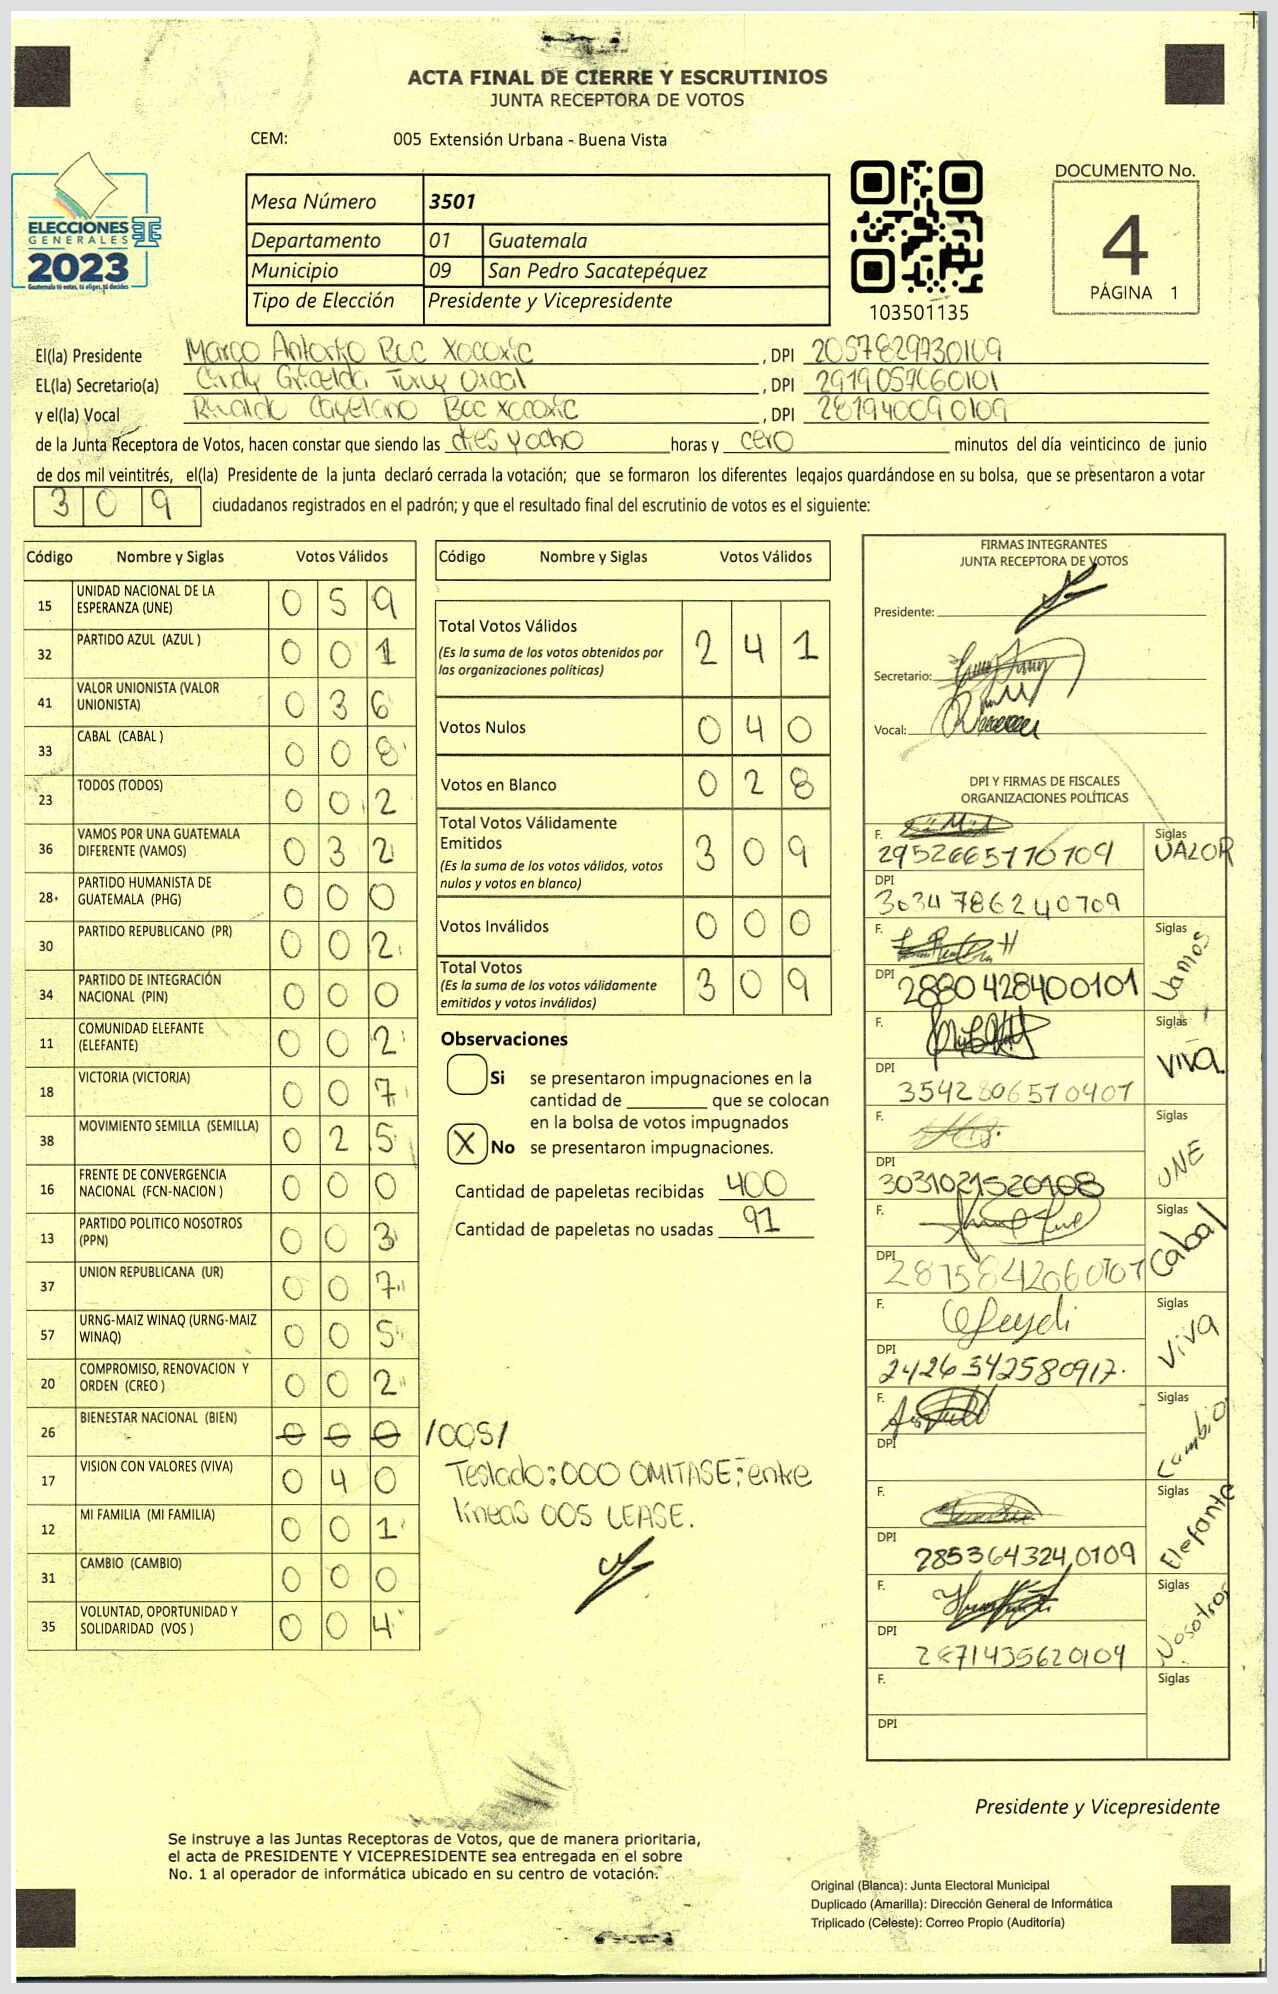 ACTA FINAL DE CIERRE Y ESCRUTINIOS
JUNTA RECEPTORA DE VOTOS
CEM: 005 Extensión Urbana - Buena Vista
ELECCIONES
GENERALES
2023
Guatemala tú votas, tú eliges, tú decides
Mesa Número 3501
Departamento 01 Guatemala
Municipio 09 San Pedro Sacatepéquez
Tipo de Elección Presidente y Vicepresidente
103501135
DOCUMENTO No.
4
PÁGINA 1
El(la) Presidente Marco Antonio Boc Xocoxic, DPI 2057829730109
EL(la) Secretario(a) Cindy Griselda, DPI 2919057060101
y el(la) Vocal Cayetano Boc Xocoxic, DPI 281940090109
de la Junta Receptora de Votos, hacen constar que siendo las dies y ocho horas y cero minutos del día veinticinco de junio
de dos mil veintitrés, el(la) Presidente de la junta declaró cerrada la votación; que se formaron los diferentes legajos guardándose en su bolsa, que se presentaron a votar
309 ciudadanos registrados en el padrón; y que el resultado final del escrutinio de votos es el siguiente:
Código Nombre y Siglas Votos Válidos
15 UNIDAD NACIONAL DE LA ESPERANZA (UNE) 0 5 9
32 PARTIDO AZUL (AZUL ) 0 0 1
41 VALOR UNIONISTA (VALOR UNIONISTA) 0 3 6
33 CABAL (CABAL ) 0 0 8
23 TODOS (TODOS) 0 0 2
36 VAMOS POR UNA GUATEMALA DIFERENTE (VAMOS) 0 3 2
28 PARTIDO HUMANISTA DE GUATEMALA (PHG) 0 0 0
30 PARTIDO REPUBLICANO (PR) 0 0 2
34 PARTIDO DE INTEGRACIÓN NACIONAL (PIN) 0 0 0
11 COMUNIDAD ELEFANTE (ELEFANTE) 0 0 2
18 VICTORIA (VICTORIA) 0 0 7
38 MOVIMIENTO SEMILLA (SEMILLA) 0 2 5
16 FRENTE DE CONVERGENCIA NACIONAL (FCN-NACION ) 0 0 0
13 PARTIDO POLITICO NOSOTROS (PPN) 0 0 3
37 UNION REPUBLICANA (UR) 0 0 7
57 URNG-MAIZ WINAQ (URNG-MAIZ WINAQ) 0 0 5
20 COMPROMISO, RENOVACION Y ORDEN (CREO ) 0 0 2
26 BIENESTAR NACIONAL (BIEN) 0 0 0 /005/
17 VISION CON VALORES (VIVA) 0 4 0
12 MI FAMILIA (MI FAMILIA) 0 0 1
31 CAMBIO (CAMBIO) 0 0 0
35 VOLUNTAD, OPORTUNIDAD Y SOLIDARIDAD (VOS ) 0 0 4
Código Nombre y Siglas Votos Válidos
Total Votos Válidos 2 4 1
(Es la suma de los votos obtenidos por
las organizaciones políticas)
Votos Nulos 0 4 0
Votos en Blanco 0 2 8
Total Votos Válidamente
Emitidos 3 0 9
(Es la suma de los votos válidos, votos
nulos y votos en blanco)
Votos Inválidos 0 0 0
Total Votos 3 0 9
(Es la suma de los votos válidamente
emitidos y votos inválidos)
Observaciones
Si se presentaron impugnaciones en la
cantidad de ________ que se colocan
en la bolsa de votos impugnados
X No se presentaron impugnaciones.
Cantidad de papeletas recibidas 400
Cantidad de papeletas no usadas 91
Testado: 000 OMITASE; entre
lineas 005 LEASE.
FIRMAS INTEGRANTES
JUNTA RECEPTORA DE VOTOS
Presidente:
Secretario:
Vocal:
DPI Y FIRMAS DE FISCALES
ORGANIZACIONES POLÍTICAS
F. Siglas
2952665770709 VALOR
DPI
3034786240709
F. Siglas
DPI 2880428400101 Vamos
F. Siglas
DPI 3542806570407 VIVA
F. Siglas
DPI 3031021520108 UNE
F. Siglas
DPI 2875842060107 Cabal
F. Siglas
DPI 2426342580917. Viva
F. Siglas
DPI Cambio
F. Siglas
DPI 2853643240109 Elefante
F. Siglas
DPI 2871435620109 Nosotros
F. Siglas
DPI
Presidente y Vicepresidente
Se instruye a las Juntas Receptoras de Votos, que de manera prioritaria,
el acta de PRESIDENTE Y VICEPRESIDENTE sea entregada en el sobre
No. 1 al operador de informática ubicado en su centro de votación.
Original (Blanca): Junta Electoral Municipal
Duplicado (Amarilla): Dirección General de Informática
Triplicado (Celeste): Correo Propio (Auditoría)